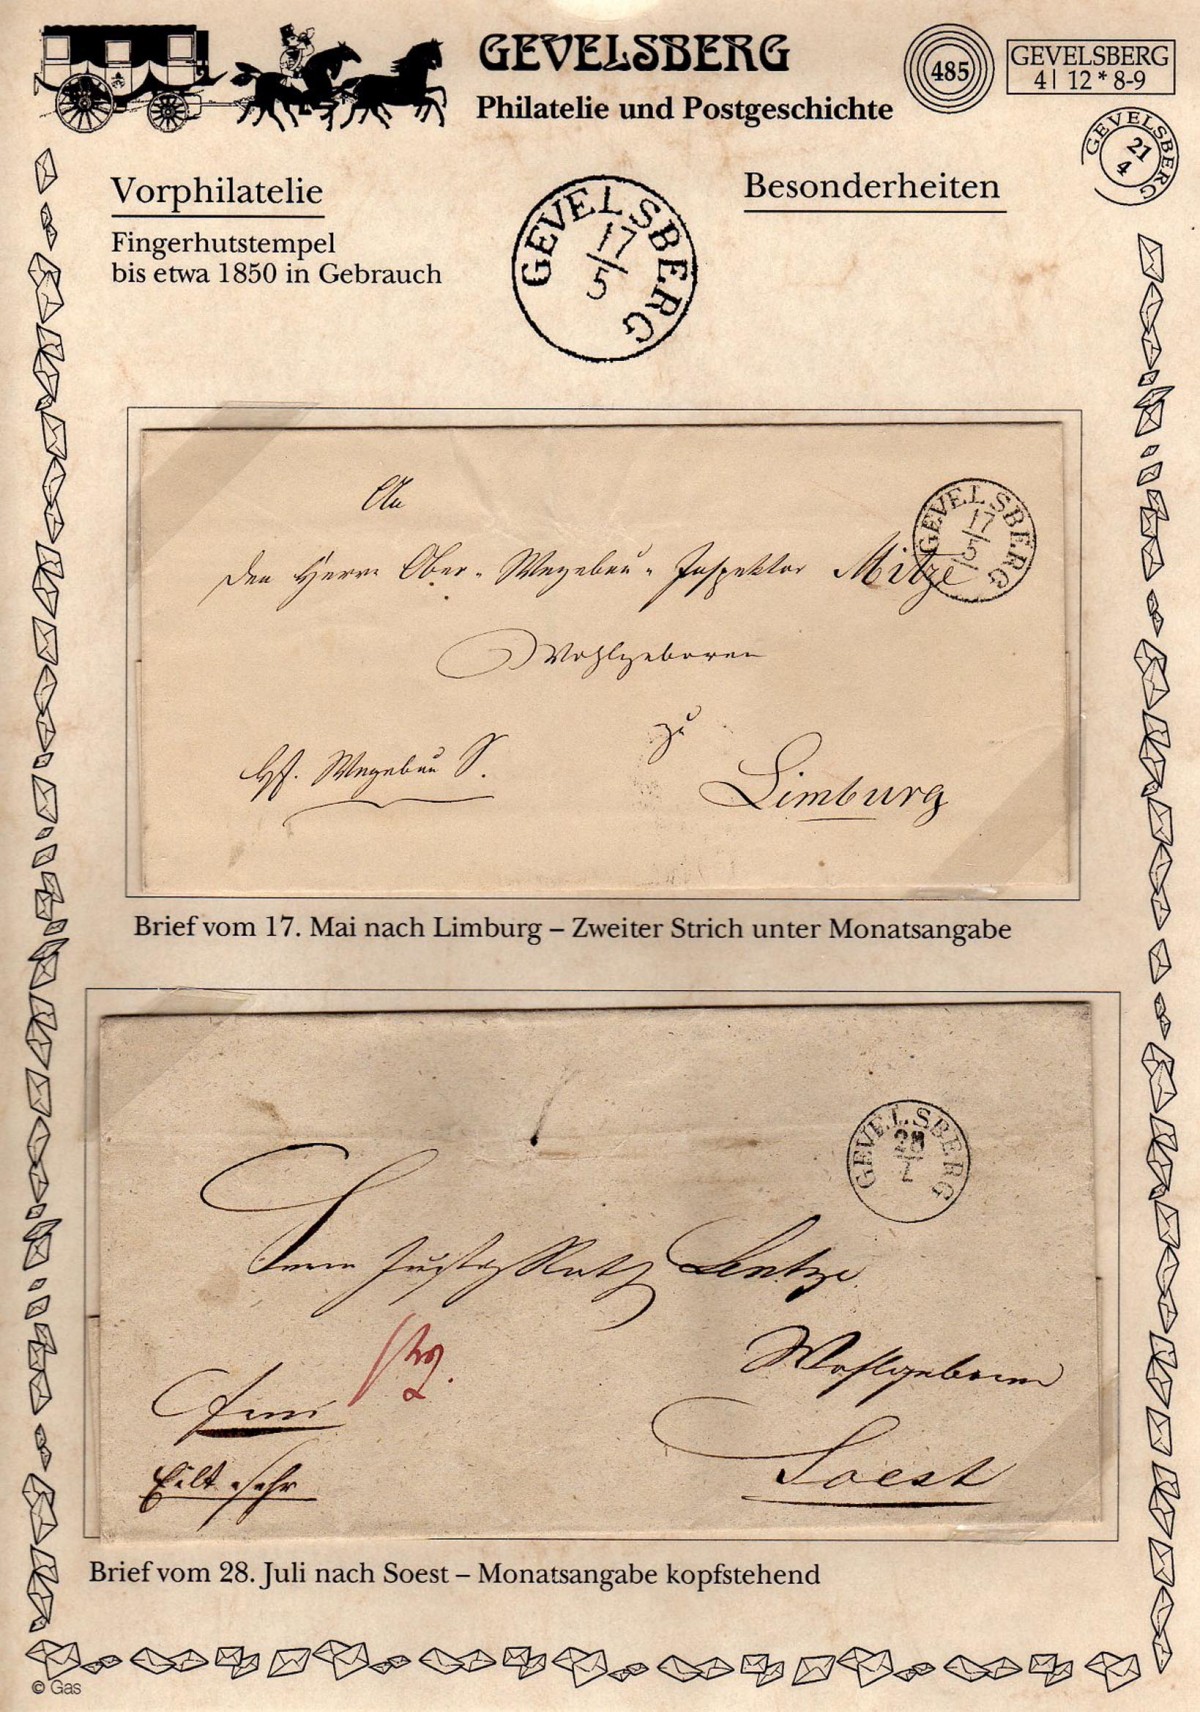 GEVELSBERG
Philatelie und Postgeschichte
485
GEVELSBERG
4| 12 * 8-9
GEVELSBERG
21
4
Vorphilatelie
Fingerhutstempel
bis etwa 1850 in Gebrauch
GEVELSBERG
17
5
Besonderheiten
An
GEVELSBERG
17
5
den Herrn Ober-Wegebau-Inspektor Mitze
Wohlgeboren
zu
Wegebau S.
Limburg
Brief vom 17. Mai nach Limburg – Zweiter Strich unter Monatsangabe
GEVELSBERG
28
7
Justiz Rath Lentze
Wohlgeboren
frei
Eilt sehr
Soest
Brief vom 28. Juli nach Soest – Monatsangabe kopfstehend
© Gas